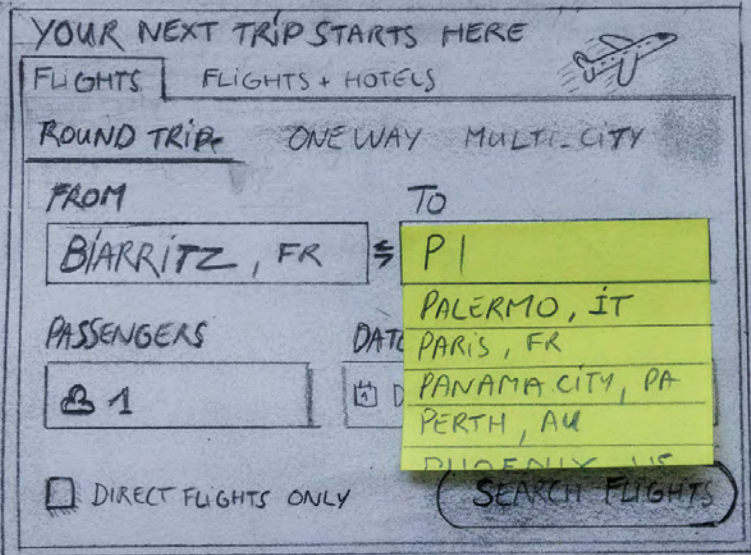 YOUR NEXT TRIP STARTS HERE
FLIGHTS FLIGHTS + HOTELS
ROUND TRIP ONE WAY MULTI-CITY
FROM TO
BIARRITZ, FR ⇆ P|
PALERMO, IT
PARIS, FR
PANAMA CITY, PA
PERTH, AU
PHOENIX, US
PASSENGERS DATE
1 D
DIRECT FLIGHTS ONLY SEARCH FLIGHTS